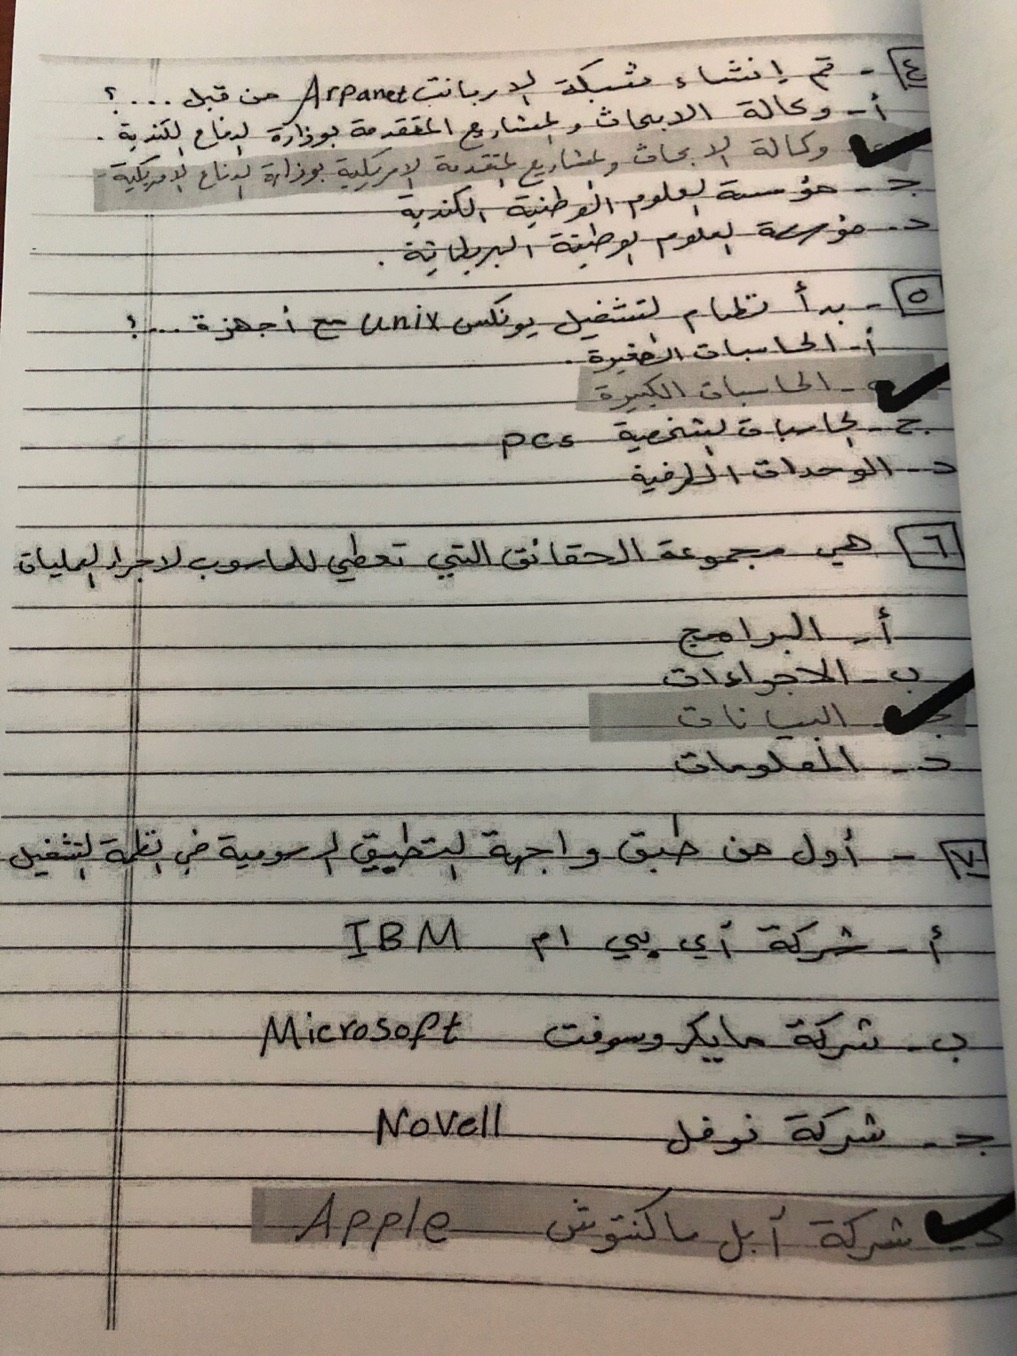 ٤ - تم إنشاء شبكة الاربانت Arpanet من قبل ....؟
أ - وكالة الابحاث والمشاريع المتقدمة بوزارة الدفاع الكندية .
وكالة الابحاث والمشاريع المتقدمة الامريكية بوزارة الدفاع الامريكية -
جـ - مؤسسة العلوم الوطنية الكندية
د - مؤسسة العلوم الوطنية البريطانية .
٥ - بدأ نظام لتشغيل يونكس unix مع أجهزة ....؟
أ - الحاسبات الصغيرة .
ب - الحاسبات الكبيرة
ج - الحاسبات الشخصية PCs
د - الوحدات الطرفية
٦ هي مجموعة الحقائق التي تعطي للحاسوب لاجراء العمليات
أ - البرامج
ب - الاجراءات
جـ - البيانات
د - المعلومات
٧ - أول من طبق واجهة التطبيق الرسومية في انظمة التشغيل
أ - شركة آي بي ام IBM
ب - شركة مايكروسوفت Microsoft
جـ - شركة نوفل Novell
د - شركة آبل ماكنتوش Apple